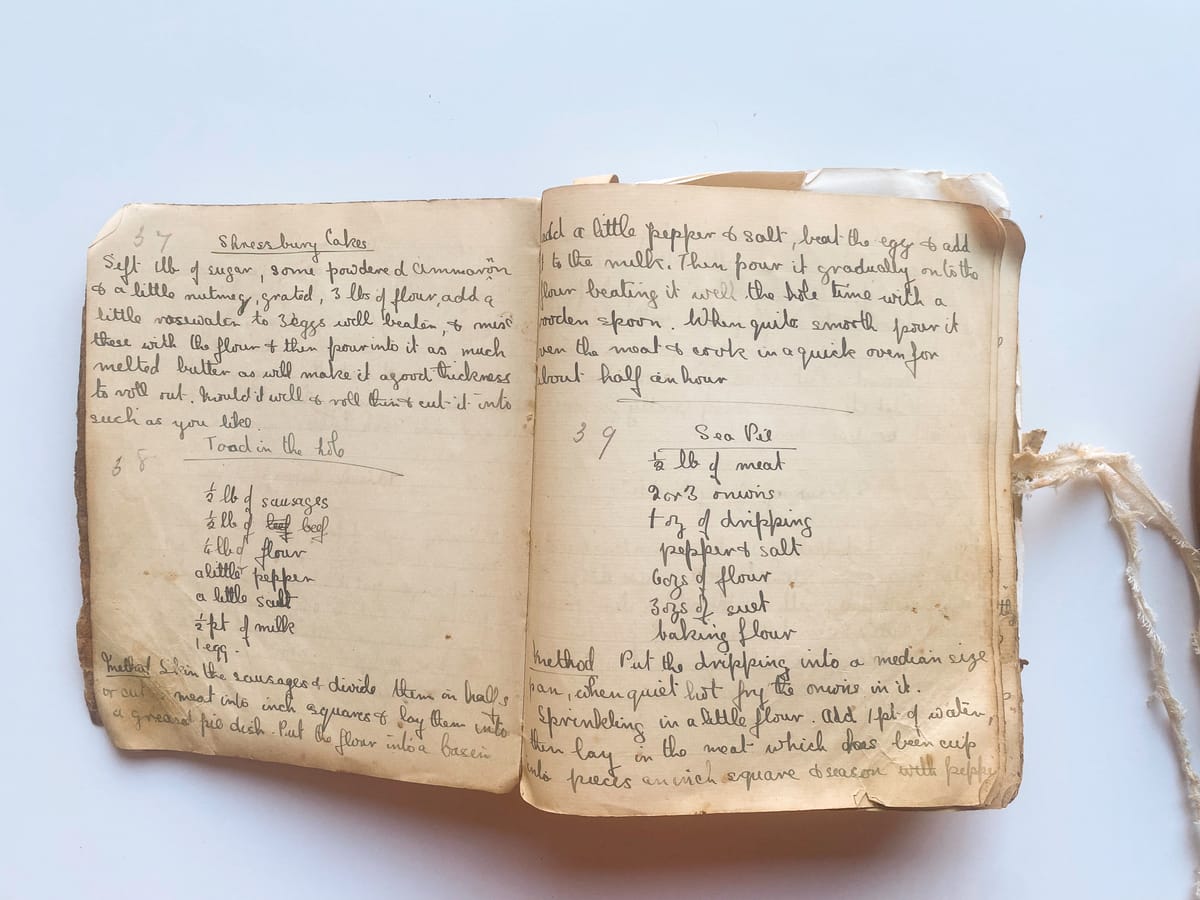 37
Shressbury Cakes
Sift 1lb of sugar, some powdered Cinnamon
& a little nutmeg, grated, 3 lbs of flour, add a
little rosewater to 3 eggs well beaten, & mix
these with the flour & then pour into it as much
melted butter as will make it a good thickness
to roll out. Mould it well & roll thin & cut it into
such as you like.
38
Toad in the hole
½ lb of sausages
½ lb of beef
¼ lb of flour
a little pepper
a little salt
½ pt of milk
1 egg.
Method Skin the sausages & divide them in halfs
or cut meat into inch squares & lay them into
a greased pie dish. Put the flour into a basin
add a little pepper & salt, beat the egg & add
to the milk. Then pour it gradually on to the
flour beating it well the hole time with a
wooden spoon. When quite smooth pour it
over the meat & cook in a quick oven for
about half an hour
39
Sea Pie
½ lb of meat
2 or 3 onions
1 oz of dripping
pepper & salt
6ozs of flour
3ozs of suet
baking flour
Method Put the dripping into a median size
pan, when quiet hot fry the onions in it.
Sprinkling in a little flour. Add 1 pt of water,
then lay in the meat which does been cup
into pieces an inch square & season with peppe